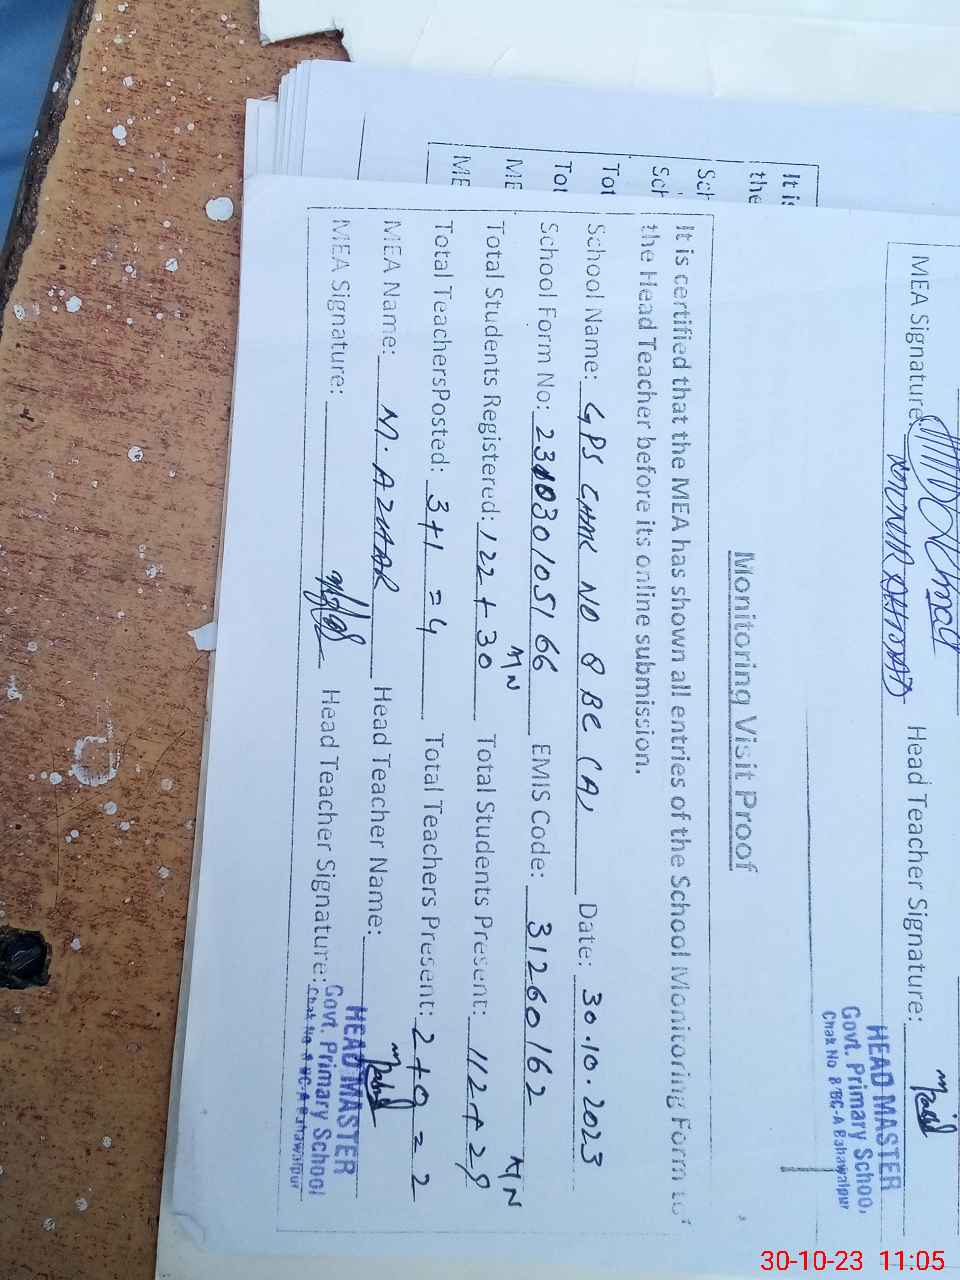 MEA Signature: Head Teacher Signature:
HEAD MASTER
Govt. Primary School,
Chak No 8/BC-A Bahawalpur
It is
the
Sch
Sch
Tot
Tot
ME
ME
Monitoring Visit Proof
It is certified that the MEA has shown all entries of the School Monitoring Form to
the Head Teacher before its online submission.
School Name: GPS CHAK NO 8 BC (A) Date: 30.10.2023
School Form No: 231030105166 EMIS Code: 31260162
Total Students Registered: 122 + 30 M N Total Students Present: 112 + 29 M N
Total TeachersPosted: 3+1 = 4 Total Teachers Present: 2 + 0 = 2
MEA Name: M. AZHAR Head Teacher Name:
MEA Signature: Head Teacher Signature:
HEAD MASTER
Govt. Primary School
Chak No 8 BC-A Bahawalpur
30-10-23 11:05